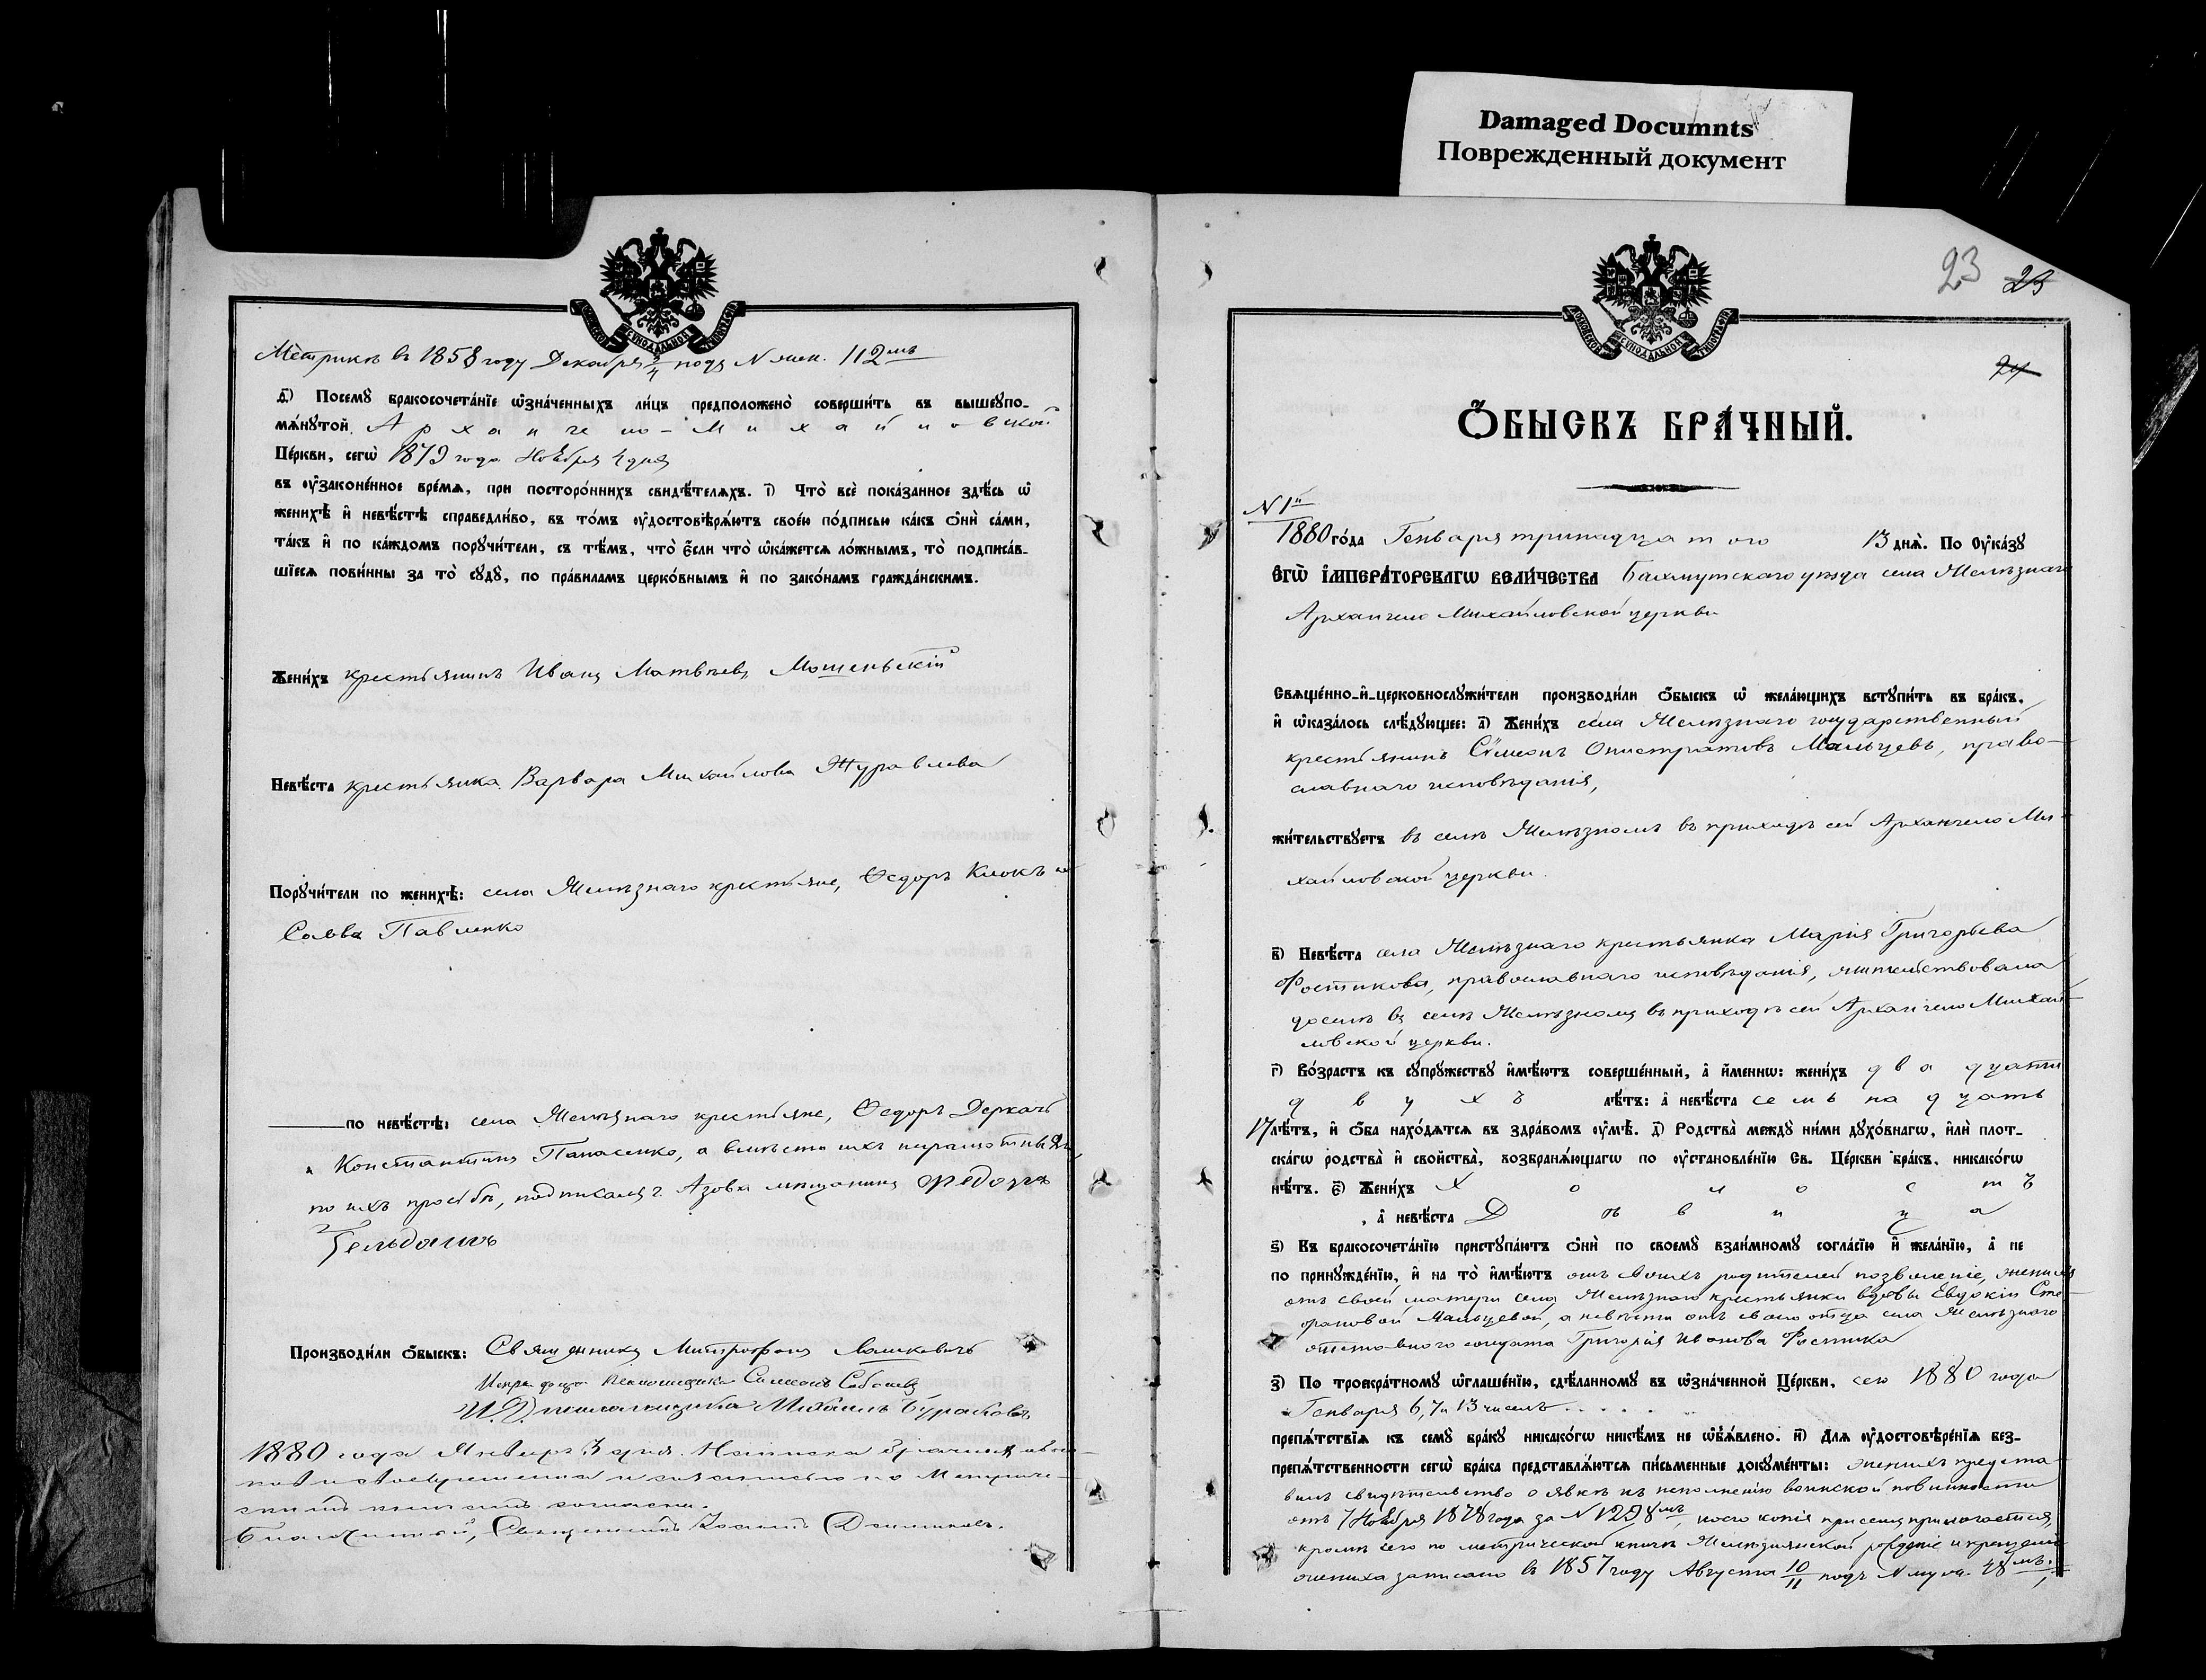 Damaged Documnts
Поврежденный документ
Метрикѣ въ 1858 году Декабря 3/4 подъ N жен. 112мъ
д҃) Посемꙋ бракосочета́нїе ѡ҆зна́ченныхъ ли́цъ предположено̀ соверши́ть въ вышеꙋпо-
мѧ́нꙋтой Архангело-Михайловской
Це́ркви, сегѡ̀ 1879 года Ноября 4 дня
въ ᲂу҆зако́ненное вре́мѧ, при посторо́ннихъ свидѣ́телѧхъ. і҃) Что̀ всѐ пока́занное здѣ́сь ѡ҆
женихѣ̀ и҆ невѣ́стѣ справедли́во, въ то́мъ ᲂу҆достовѣрѧ́ютъ свое́ю по́дписью ка́къ ѻ҆нѝ са́ми,
та́къ и҆ по ка́ждомъ порꙋчи́тели, съ тѣ́мъ, что̀ є҆́сли что̀ ѡ҆ка́жетсѧ ло́жнымъ, то̀ подписа́в-
шїесѧ пови́нны за то̀ сꙋдꙋ̀, по пра́виламъ церко́внымъ и҆ по зако́намъ гражда́нскимъ.
Жени́хъ крестьянинъ Иванъ Матвѣевъ Мошенскій
Невѣ́ста крестьянка Варвара Михайлова Журавлева
Порꙋчи́тели по женихѣ̀: села Желѣзнаго крестьяне, Ѳедоръ Клокъ и
Савва Павленко
по невѣ́стѣ: села Желѣзнаго крестьяне, Ѳедоръ Деркачъ
и Константинъ Панасенко, а вмѣсто ихъ неграмотныхъ
по ихъ просьбѣ, подписался г. Азова мѣщанинъ Федоръ
Производи́ли ѻ҆́быскъ: Священникъ Митрофанъ
Псаломщикъ Симеонъ
И. Д. псаломщика Михаилъ Бураковъ
1880 года Января 3 дня.
Благочинный, Священникъ
23 23
24
Ѻ҆́БЫСКЪ БРА́ЧНЫЙ.
N 1й
1880 го́да Генваря тринадцатого 13 днѧ̀. По Оу҆ка́зꙋ
Є҆ГѠ̀ І҆МПЕРА́ТОРСКАГѠ ВЕЛИ́ЧЕСТВА Бахмутскаго уѣзда села Желѣзнаго
Архангело Михайловской церкви
Свѧще́нно-и҆-церковнослꙋжи́тели производи́ли ѻ҆́быскъ ѡ҆ жела́ющихъ встꙋпи́ть въ бра́къ,
и҆ ѡ҆каза́лось слѣ́дꙋющее: а҃) Жени́хъ села Желѣзнаго государственный
крестьянинъ Сѵмеонъ Онистратовъ Мальцевъ, право-
славнаго исповѣданія,
жи́тельствꙋетъ въ селѣ Желѣзномъ въ приходѣ сей Архангело Ми-
хайловской церкви.
в҃) Невѣ́ста села Желѣзнаго крестьянка Марія Григорьева
Фостикова, православнаго исповѣданія, жительствовала
доселѣ въ селѣ Желѣзномъ въ приходѣ сей Архангело Михай-
ловской церкви.
г҃) Во́зрастъ къ сꙋпрꙋжествꙋ и҆мѣ́ютъ соверше́нный, а҆ и҆́менно: жени́хъ двадцати
двухъ лѣ́тъ: а҆ невѣ́ста семьнадцать
17 лѣ́тъ, и҆ ѻ҆́ба нахо́дѧтсѧ въ здра́вомъ ᲂу҆мѣ̀. д҃) Родства̀ междꙋ ни́ми дꙋхо́внагѡ, и҆лѝ плот-
ска́гѡ родства̀ и҆ сво́йства̀, возбранѧ́ющагѡ по ᲂу҆становле́нїю Св. Це́ркви бра́къ, никако́гѡ
нѣ́тъ. є҃) Жени́хъ Холостъ
, а҆ невѣ́ста Дѣвица
ѕ҃) Къ бракосочета́нїю пристꙋпа́ютъ ѻ҆нѝ по своемꙋ̀ взаи́мномꙋ согла́сїю и҆ жела́нїю, а҆ не
по принꙋжде́нїю, и҆ на то̀ и҆мѣ́ютъ отъ своихъ родителей позволеніе, женихъ
отъ своей матери села Желѣзнаго крестьянки вдовы Евдокіи Сте-
фановой Мальцевой, а невѣста отъ своего отца села Желѣзнаго
отставного солдата Григорія Иванова Фостика
з҃) По троекра́тномꙋ ѡ҆глаше́нїю, сдѣ́ланномꙋ въ ѡ҆зна́ченной Це́ркви, сего 1880 года
Генваря 6, 7 и 13 числъ
препѧ́тствїѧ къ семꙋ̀ бра́кꙋ никако́гѡ никѣ́мъ не ѡ҆б̾ѧ́влено. и҃) Длѧ ᲂу҆достовѣре́нїѧ без-
препѧ́тственности сегѡ̀ бра́ка представлѧ́ютсѧ пи́сьменные докꙋме́нты: женихъ предста-
вилъ свидѣтельство о явкѣ къ исполненію воинской повинности
отъ 7 Ноября 1878 года за N 1258мъ, коего копія при семъ прилагается,
кромѣ сего по метрической книгѣ Желѣзнянской рожденіе и крещеніе
жениха записано въ 1857 году Августа 10/11 подъ N муж. 48мъ,